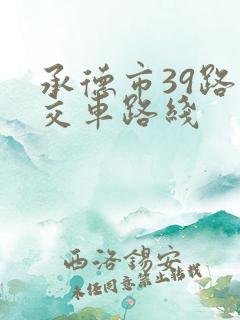 承德市39路
交车路线
西洛锡安
未经同意禁止转载